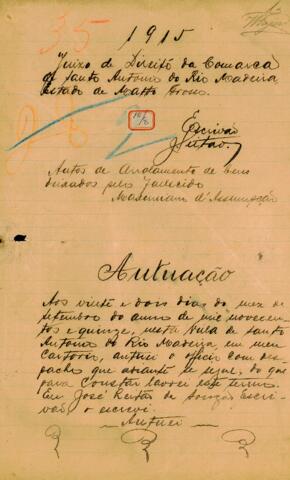 35
1915
Juizo de Direito da Comarca
de Santo Antonio do Rio Madeira
Estado de Matto Grosso.
Escrivão
Autos de de bens
deixados pelo fallecido
d'Assumpção
Autuação
Aos vinte e dois dias do mez de
setembro do anno de mil novecen-
tos e quinze, nesta Villa de Santo
Antonio do Rio Madeira, em meu
Cartorio, autuei o officio com des-
pacho que adiante se segue, do que
para constar lavrei este termo.
Eu José de Souza Escri-
vão o escrevi.
Autuei